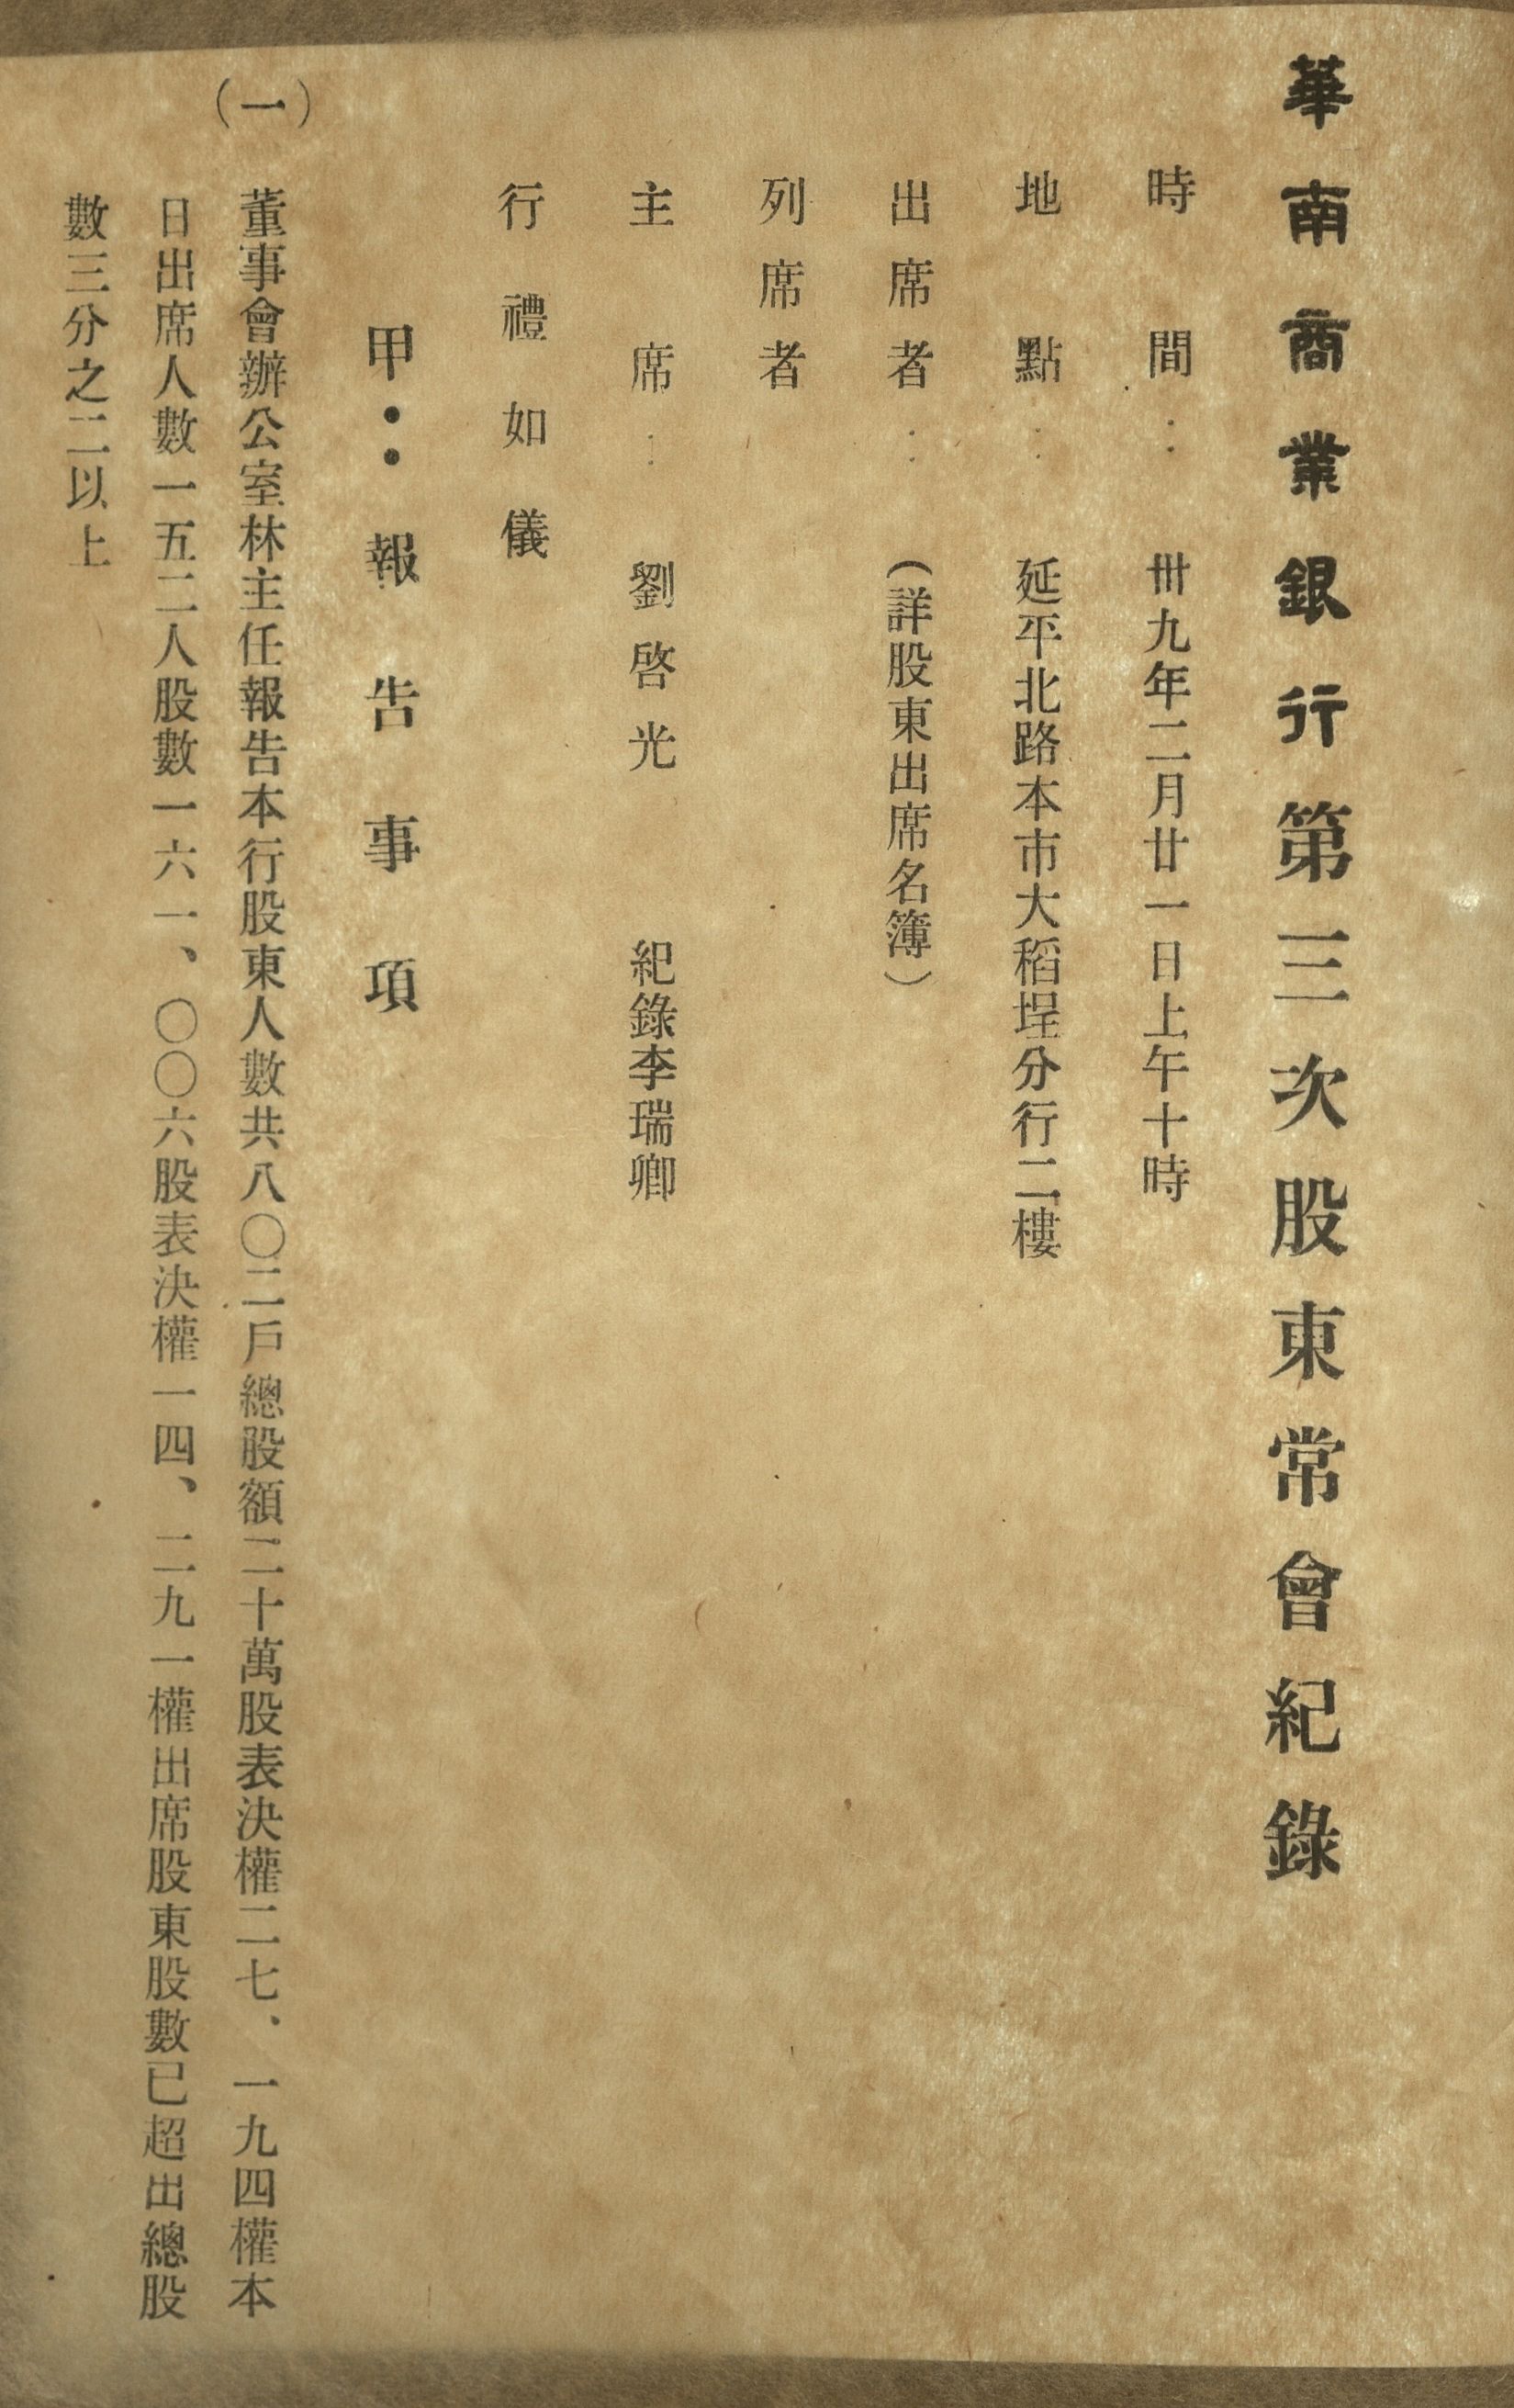 華南商業銀行第三次股東常會紀錄
時間：卅九年二月廿一日上午十時
地點：延平北路本市大稻埕分行二樓
出席者：（詳股東出席名簿）
列席者
主席：劉啓光　紀錄李瑞卿
行禮如儀
甲：報告事項
（一）董事會辦公室林主任報告本行股東人數共八〇二戶總股額二十萬股表決權二七、一九四權本
日出席人數一五二人股數一六一、〇〇六股表決權一四、二九一權出席股東股數已超出總股
數三分之二以上